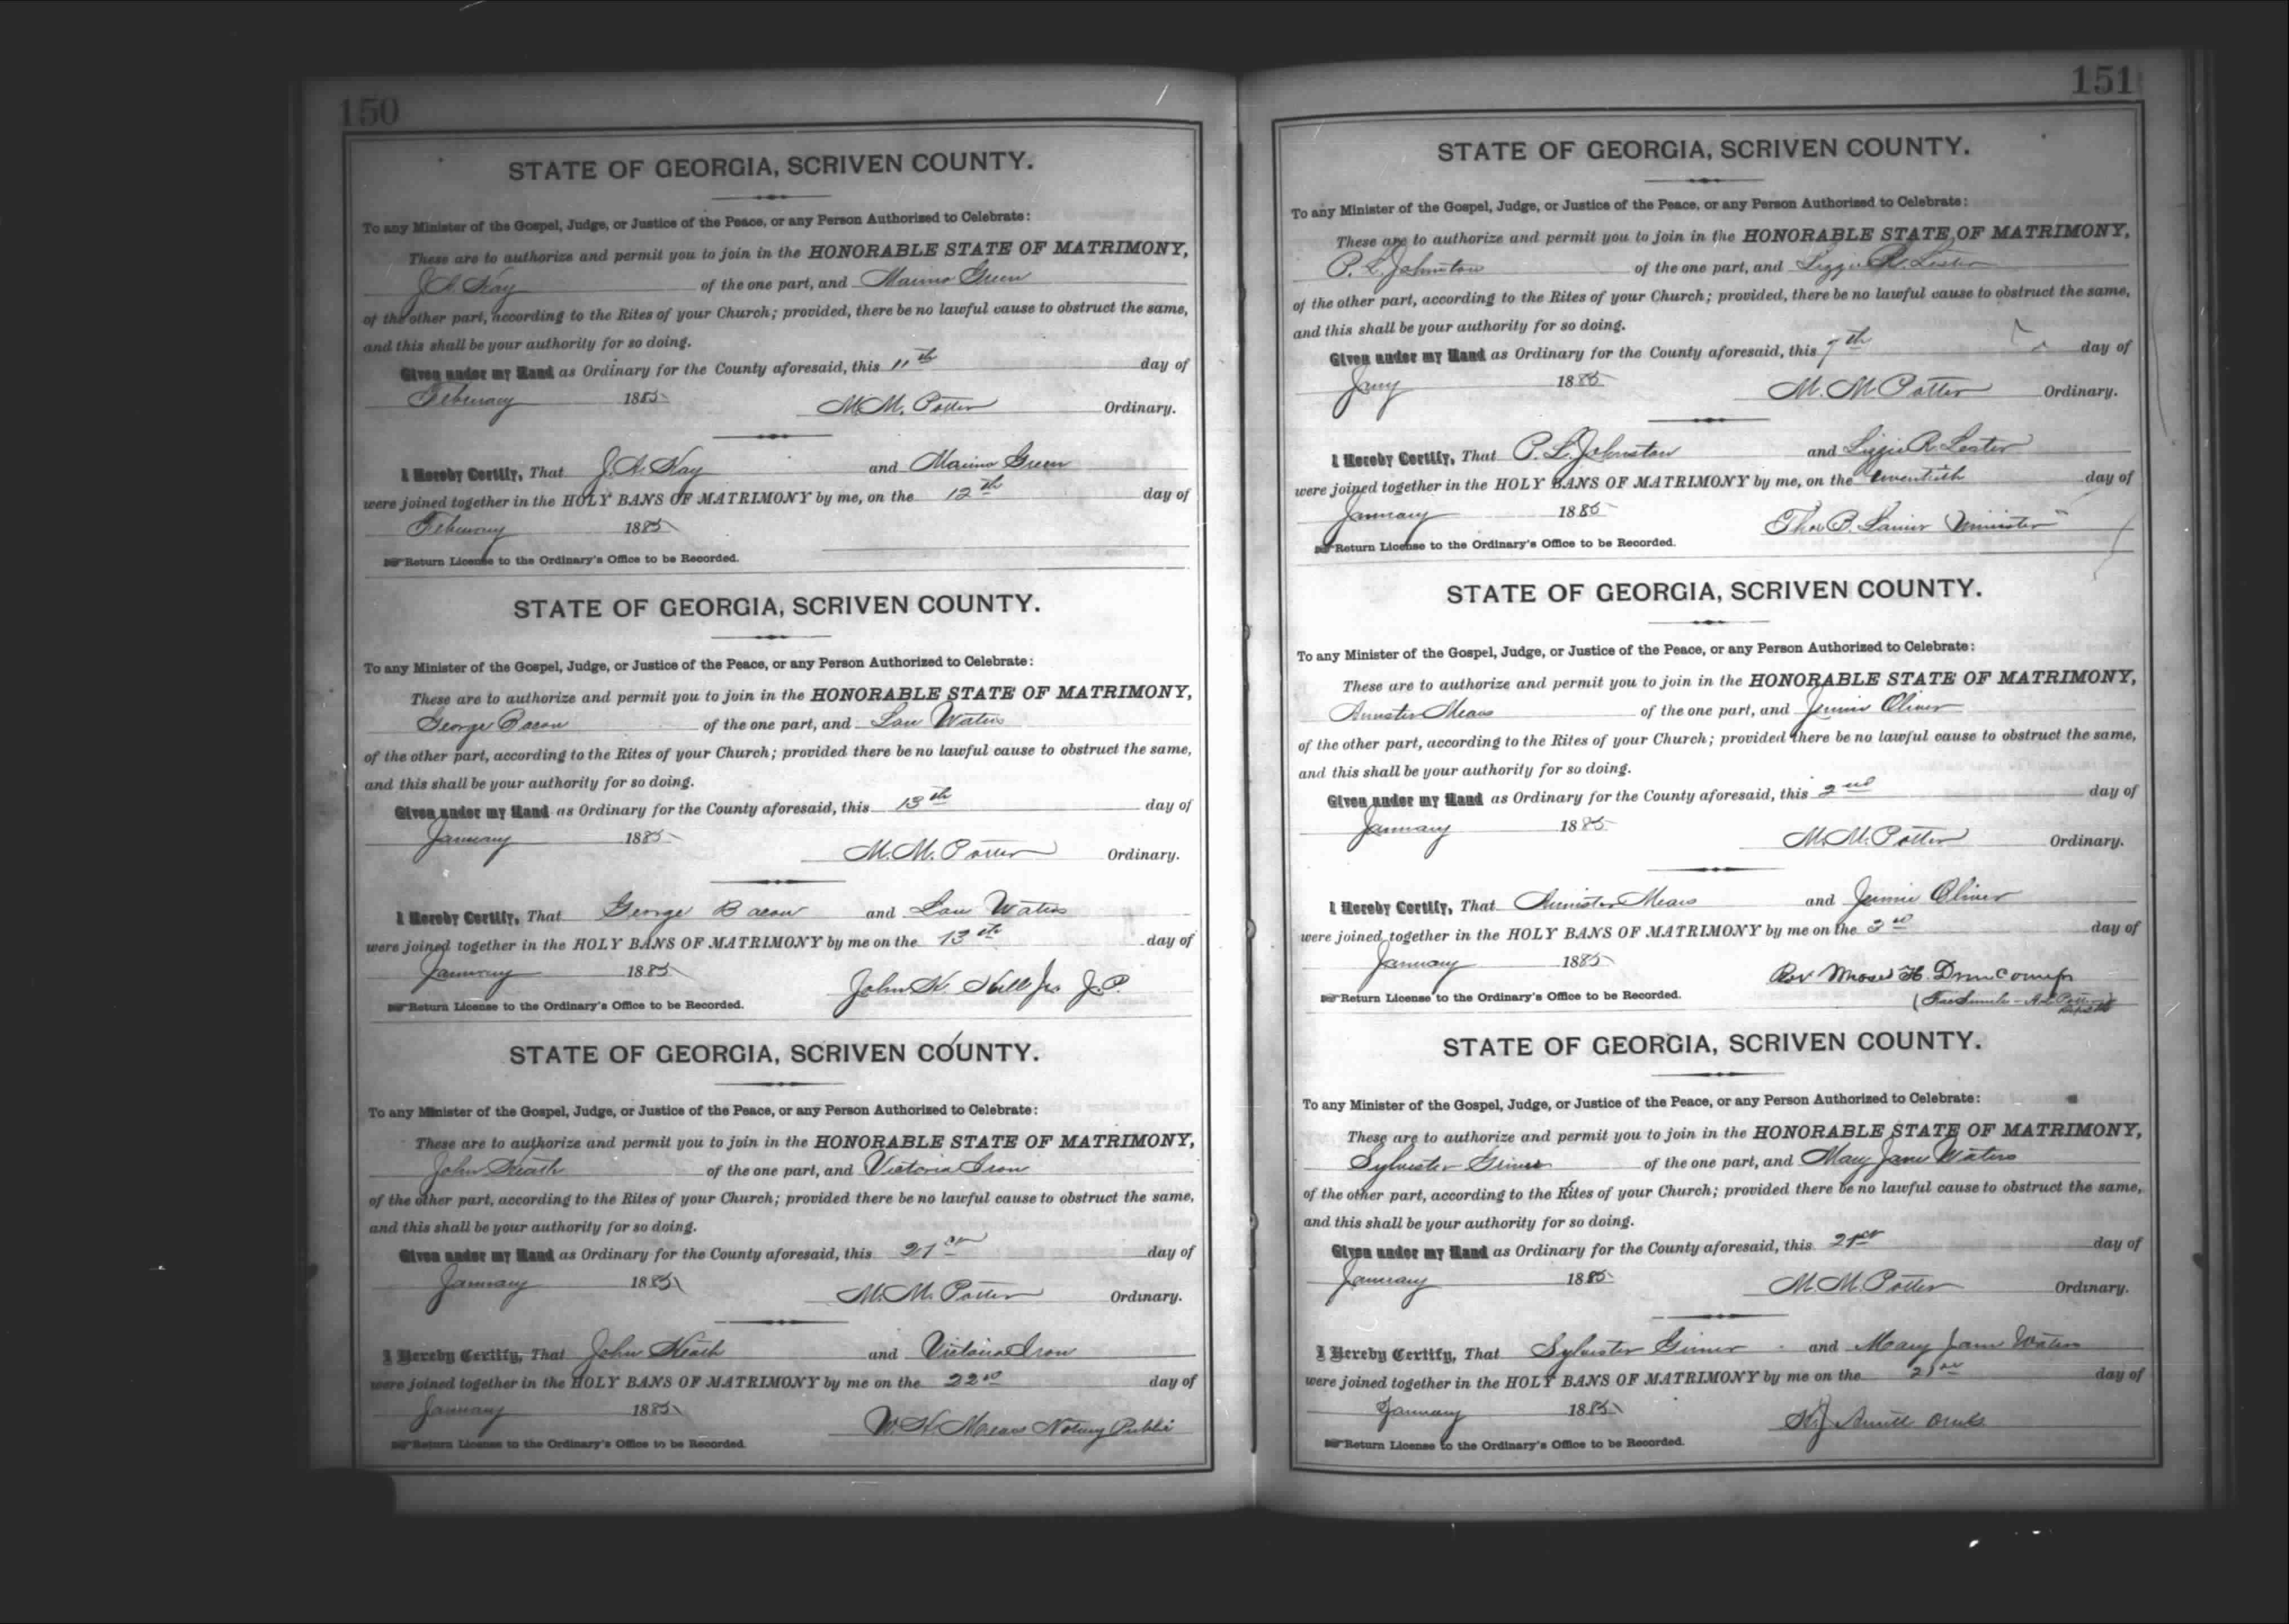 150
STATE OF GEORGIA, SCRIVEN COUNTY.
To any Minister of the Gospel, Judge, or Justice of the Peace, or any Person Authorized to Celebrate:
These are to authorize and permit you to join in the HONORABLE STATE OF MATRIMONY,
J. A. Kay of the one part, and Green
of the other part, according to the Rites of your Church; provided, there be no lawful cause to obstruct the same,
and this shall be your authority for so doing.
Given under my Hand as Ordinary for the County aforesaid, this 11th day of
February 1885 M. M. Potter Ordinary.
I Hereby Certify, That J. A. Kay and Green
were joined together in the HOLY BANS OF MATRIMONY by me, on the 12th day of
February 1885
Return License to the Ordinary's Office to be Recorded.
STATE OF GEORGIA, SCRIVEN COUNTY.
To any Minister of the Gospel, Judge, or Justice of the Peace, or any Person Authorized to Celebrate:
These are to authorize and permit you to join in the HONORABLE STATE OF MATRIMONY,
George Bacon of the one part, and Lou Waters
of the other part, according to the Rites of your Church; provided there be no lawful cause to obstruct the same,
and this shall be your authority for so doing.
Given under my Hand as Ordinary for the County aforesaid, this 13th day of
January 1885 M. M. Potter Ordinary.
I Hereby Certify, That George Bacon and Lou Waters
were joined together in the HOLY BANS OF MATRIMONY by me on the 13th day of
January 1885 John H. Hull Jr J.P.
Return License to the Ordinary's Office to be Recorded.
STATE OF GEORGIA, SCRIVEN COUNTY.
To any Minister of the Gospel, Judge, or Justice of the Peace, or any Person Authorized to Celebrate:
These are to authorize and permit you to join in the HONORABLE STATE OF MATRIMONY,
John Heath of the one part, and Victoria Iron
of the other part, according to the Rites of your Church; provided there be no lawful cause to obstruct the same,
and this shall be your authority for so doing.
Given under my Hand as Ordinary for the County aforesaid, this 21st day of
January 1885 M. M. Potter Ordinary.
I Hereby Certify, That John Heath and Victoria Iron
were joined together in the HOLY BANS OF MATRIMONY by me on the 22nd day of
January 1885 W. H. Mears Notary Public
Return License to the Ordinary's Office to be Recorded.
151
STATE OF GEORGIA, SCRIVEN COUNTY.
To any Minister of the Gospel, Judge, or Justice of the Peace, or any Person Authorized to Celebrate:
These are to authorize and permit you to join in the HONORABLE STATE OF MATRIMONY,
P. L. Johnston of the one part, and Lizzie R. Lester
of the other part, according to the Rites of your Church; provided, there be no lawful cause to obstruct the same,
and this shall be your authority for so doing.
Given under my Hand as Ordinary for the County aforesaid, this 7th day of
Jany 1885 M. M. Potter Ordinary.
I Hereby Certify, That P. L. Johnston and Lizzie R. Lester
were joined together in the HOLY BANS OF MATRIMONY by me, on the twentieth day of
January 1885 Thos B. Lanier Minister
Return License to the Ordinary's Office to be Recorded.
STATE OF GEORGIA, SCRIVEN COUNTY.
To any Minister of the Gospel, Judge, or Justice of the Peace, or any Person Authorized to Celebrate:
These are to authorize and permit you to join in the HONORABLE STATE OF MATRIMONY,
Mears of the one part, and Jennie Oliver
of the other part, according to the Rites of your Church; provided there be no lawful cause to obstruct the same,
and this shall be your authority for so doing.
Given under my Hand as Ordinary for the County aforesaid, this 2nd day of
January 1885 M. M. Potter Ordinary.
I Hereby Certify, That Mears and Jennie Oliver
were joined together in the HOLY BANS OF MATRIMONY by me on the day of
January 1885 Rev Moses H.
Return License to the Ordinary's Office to be Recorded. (Fac Simile
STATE OF GEORGIA, SCRIVEN COUNTY.
To any Minister of the Gospel, Judge, or Justice of the Peace, or any Person Authorized to Celebrate:
These are to authorize and permit you to join in the HONORABLE STATE OF MATRIMONY,
Sylvester of the one part, and Mary Jane Waters
of the other part, according to the Rites of your Church; provided there be no lawful cause to obstruct the same,
and this shall be your authority for so doing.
Given under my Hand as Ordinary for the County aforesaid, this 21st day of
January 1885 M. M. Potter Ordinary.
I Hereby Certify, That Sylvester and Mary Jane Waters
were joined together in the HOLY BANS OF MATRIMONY by me on the 21st day of
January 1885
Return License to the Ordinary's Office to be Recorded.